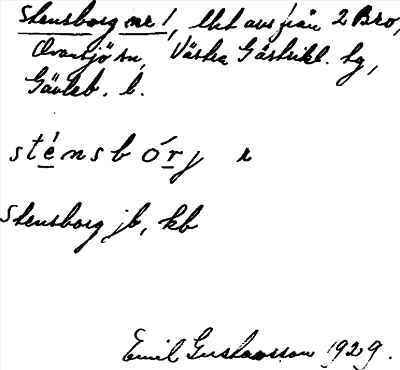 Stensborg nr 1, lht avs från 2 Bro,
Ovansjö sn, Västra Gästrikl. tg,
Gävleb. l.
sténsbórj r
Stensborg jb, kb
Emil Gustavsson 1929.